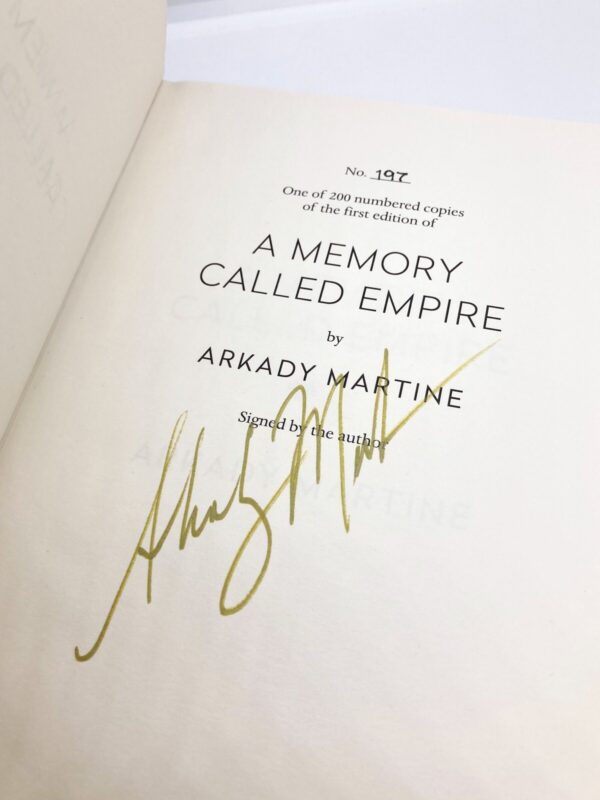 No. 197
One of 200 numbered copies
of the first edition of
A MEMORY
CALLED EMPIRE
by
ARKADY MARTINE
Signed by the author
Arkady Martine